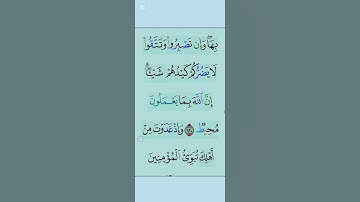 بِهَاۖ وَإِن تَصْبِرُواْ وَتَتَّقُواْ
لَا يَضُرُّكُمْ كَيْدُهُمْ شَيْـًٔاۗ
إِنَّ ٱللَّهَ بِمَا يَعْمَلُونَ
مُحِيطٞ ١٢٠ وَإِذْ غَدَوْتَ مِنْ
أَهْلِكَ تُبَوِّئُ ٱلْمُؤْمِنِينَ